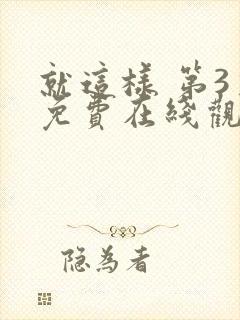 就這樣 第3
免費在綫觀
隐为者